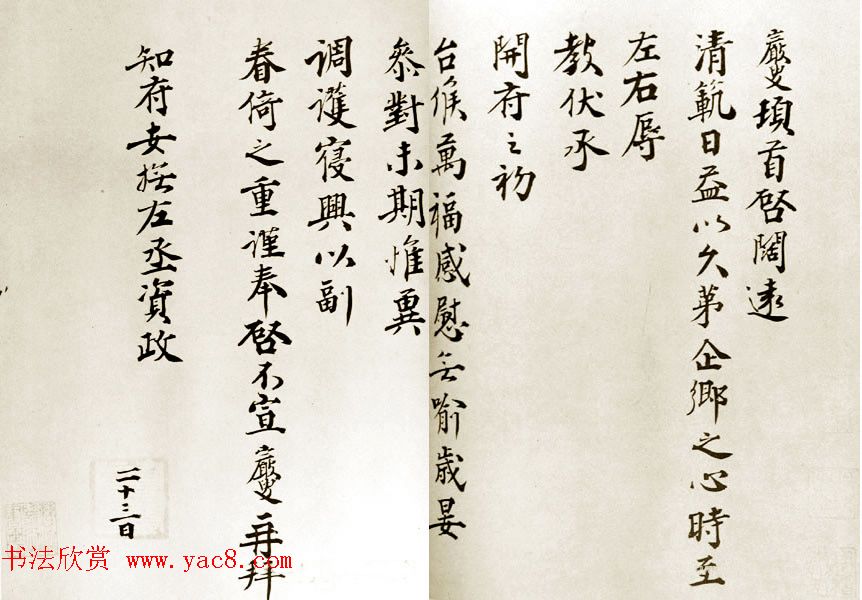 巖叟頓首啓闊遠
清範日益以久第企鄉之心時至
左右辱
教伏承
開府之初
台候萬福感慰無喻歲晏
叅對未期惟冀
調護寢興以副
春倚之重謹奉啓不宣巖叟再拜
知府安撫左丞資政
二十三日
书法欣赏 www.yac8.com